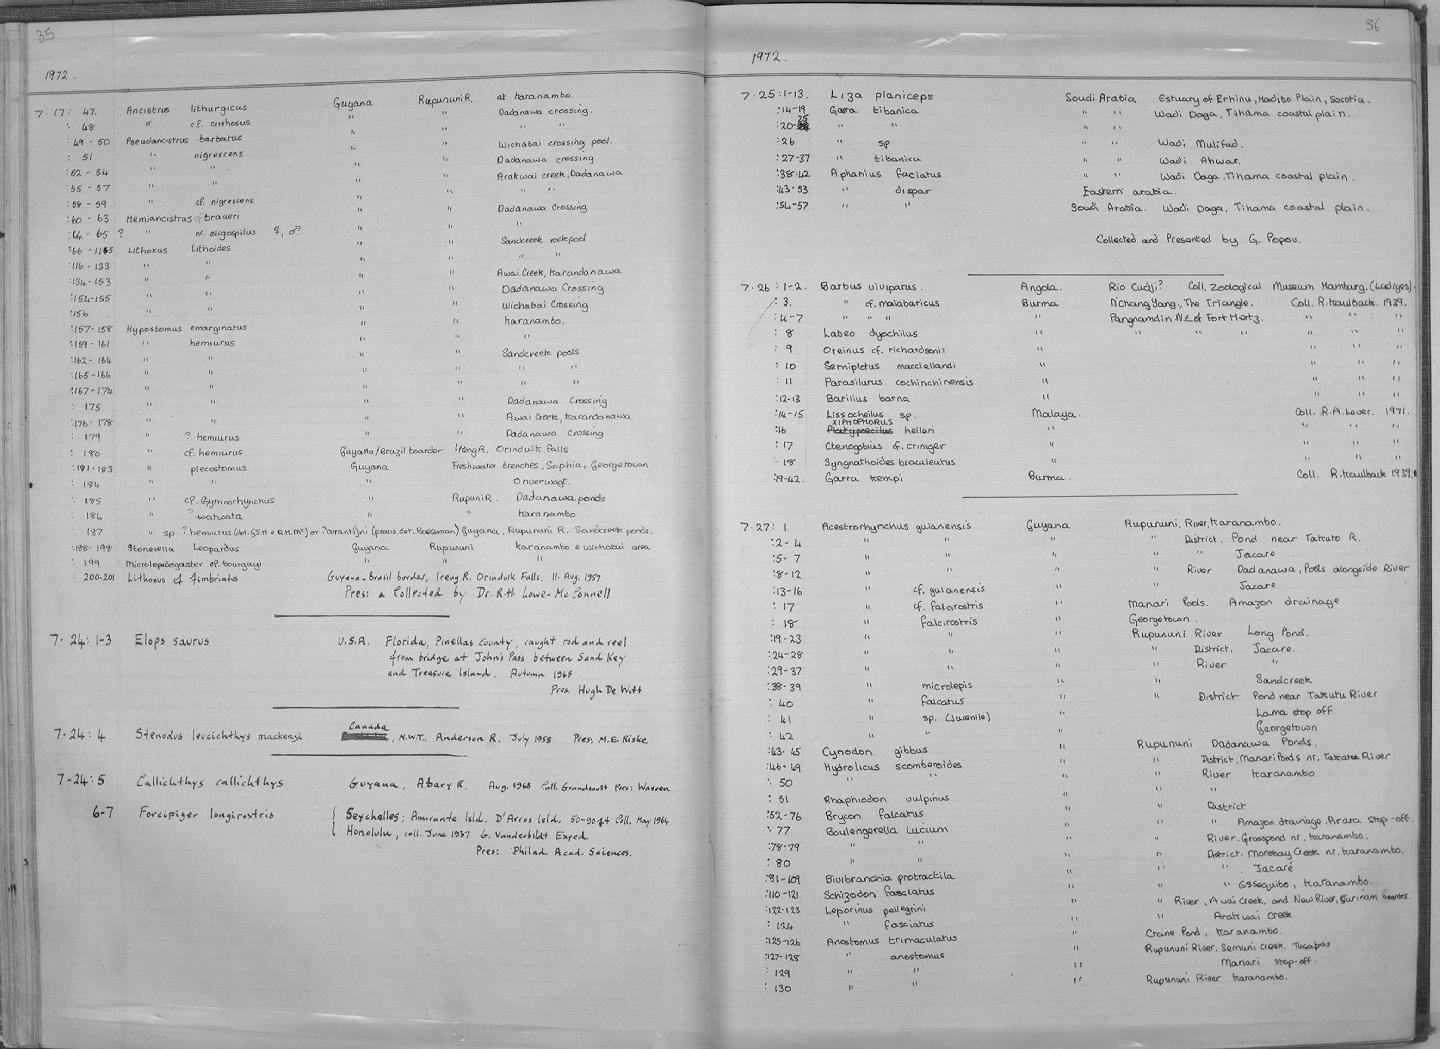 35
1972.
7.17: 47. Ancistrus lithurgicus Guyana Rupununi R. at Karanambo.
: 48 " cf. cirrhosus " " Dadanawa crossing.
:49-50 Pseudancistrus barbatus " " " "
: 51 " nigrescens " " Wichabai crossing pool.
:52-54 " " " " Dadanawa crossing
:55-57 " " " " Arakwai creek, Dadanawa
:58-59 " cf. nigrescens " " " "
:60-63 Hemiancistrus cf braueri " " Dadanawa Crossing
:64-65 ? " nr. oligospilus ♀, ♂? " " "
:66-115 Lithoxus lithoides " " Sandcreek rockpool
:116-133 " " " " " "
:134-153 " " " " Awai Creek, Karandanawa
:154-155 " " " " Dadanawa Crossing
:156 " " " " Wichabai Crossing
:157-158 Hypostomus emarginatus " " Karanambo.
:159-161 " hemiurus " " "
:162-164 " " " " Sandcreek pools
:165-166 " " " " " "
:167-174 " " " " " "
: 175 " " " " Dadanawa Crossing
:176-178 " " " " Awai Creek, Karandanawa
: 179 " ? hemiurus " " Dadanawa Crossing
: 180 " cf. hemiurus Guyana/Brazil boarder Ireng R. Orinduik falls
:181-183 " plecostomus Guyana Freshwater trenches, Sophia, Georgetown
: 184 " " " Onverwagt.
: 185 " cf. Gymnorhynchus " Rupuni R. Dadanawa ponds
: 186 " ? watwata " " Karanambo
: 187 " sp ? hemiurus Guyana, Rupununi R. Sandcreek ponds.
:188-198 Stoneiella Leopardus Guyana Rupununi Karanambo & Wichabai area
: 199 Microlepidogaster cf. bourguyi " " "
: 200-201 Lithoxus cf fimbriatus Guyana-Brasil border, Ireng R. Orinduik Falls. 11. Aug. 1957
Pres: & Collected by Dr. R.H. Lowe-McConnell
7.24: 1-3 Elops saurus U.S.A. Florida, Pinellas County, caught rod and reel
from bridge at John's Pass between Sand Key
and Treasure Island. Autumn 1968
Pres Hugh De Witt
7.24: 4 Stenodus leucichthys mackenzi Canada, N.W.T., Anderson R. July 1958 Pres: M.E. Riske
7-24:5 Callichthys callichthys Guyana, Abary R. Aug. 1968 Coll. Grandsoult Pres: Warren
6-7 Forcipiger longirostris { Seychelles; Amirante Isld. D'Arros Isld. 50-90ft Coll. May 1964
Honolulu, coll. June 1937 G. Vanderbildt Exped.
Pres: Philad. Acad. Sciences.
36
1972.
7.25:1-13. Liza planiceps Saudi Arabia Estuary of Erhinu, Hadibo Plain, Socotia.
:14-19 Garra tibanica " " Wadi Daga, Tihama coastal plain.
:20-25 " " " "
:26 " sp " " Wadi Mulifad.
:27-37 " tibanica " " Wadi Ahwar.
:38-42 Aphanius faciatus " " Wadi Daga. Tihama coastal plain.
:43-53 " dispar Eastern arabia.
:54-57 " " Saudi Arabia. Wadi Daga, Tihama coastal plain.
Collected and Presented by G. Popov.
7.26:1-2. Barbus viviparus. Angola. Rio Cudji? Coll. Zoological Museum Hamburg. (Ladiges).
: 3. " cf. malabaricus Burma N'Chang Yang, The Triangle. Coll. R. Kaulback. 1939.
:4-7 " " " " Pangnamdin N.E. of Fort Hertz. " " "
: 8 Labeo dyochilus " " " " " "
: 9 Oreinus cf. richardsonii " " "
: 10 Semiplotus macclellandi " " "
: 11 Parasilurus cochinchinensis " " "
:12-13 Barilius barna " " "
:14-15 Lissocheilus sp. Malaya. Coll. R.A. Lever. 1971.
:16 XIPHOPHORUS helleri " " "
: 17 Ctenogobius cf. criniger " " "
: 18 Syngnathoides biaculeatus " " "
:19-42. Garra kempi Burma. Coll. R. Kaulback 1939.
7.27: 1 Acestrorhynchus guianensis Guyana Rupununi. River, Karanambo.
:2-4 " " " " District. Pond near Takuto R.
:5-7 " " " " " Jacare
:8-12 " " " " River Dadanawa, Pools alongside River
:13-16 " cf. guianensis " " Jacare
: 17 " cf. falcirostris " Manari Pools. Amazon drainage
: 18 " falcirostris " Georgetown.
:19-23 " " " Rupununi River Long Pond.
:24-28 " " " " District. Jacare.
:29-37 " " " " River "
:38-39 " microlepis " " Sandcreek
: 40 " falcatus " " District Pond near Takutu River
: 41 " sp. (Juvenile) " Lama stop off
: 42 " " " Georgetown
:43-45 Cynodon gibbus " Rupununi Dadanawa Ponds.
:46-49 Hydrolicus scomberoides " " District, Manari Ponds nr. Takatu River
: 50 " " " " River Karanambo
: 51 Rhaphiodon vulpinus " " "
:52-76 Brycon falcatus " " District
: 77 Boulengerella Lucium " " " Amazon drainage. Pirara stop-off.
:78-79 " " " " River. Grasspond nr. Karanambo.
: 80 " " " " District. Morebay Creek nr. Karanambo.
:81-109 Bivibranchia protractila " " " . Jacaré
:110-121 Schizodon fasciatus " " " Essequibo, Karanambo.
:122-123 Leporinus pellegrini " " River, Awai Creek, and New River, Surinam boarder.
: 124 " fasciatus " " Arakwai Creek
:125-126 Anostomus trimaculatus " Crane Pond, Karanambo.
:127-128 " anostomus " Rupununi River. Semuni Creek.
: 129 " " " Manari stop-off.
: 130 " " " Rupununi River Karanambo.